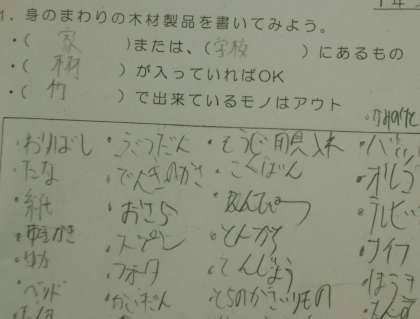 1. 身のまわりの木材製品を書いてみよう。
・( 家 )または、(学校 )にあるもの
・( 木材 ) が入っていればOK
・( 竹 ) で出来ているモノはアウト
・わりばし
・たな
・紙
・ゆか
・ベッド
・でんきのかさ
・おさら
・スプーン
・フォーク
・かいだん
・そうじ用具入れ
・こくばん
・えんぴつ
・とんかち
・てんじょう
・とらのかざりもの
・オルゴ
・テレビ
・ナイフ
・ほうき